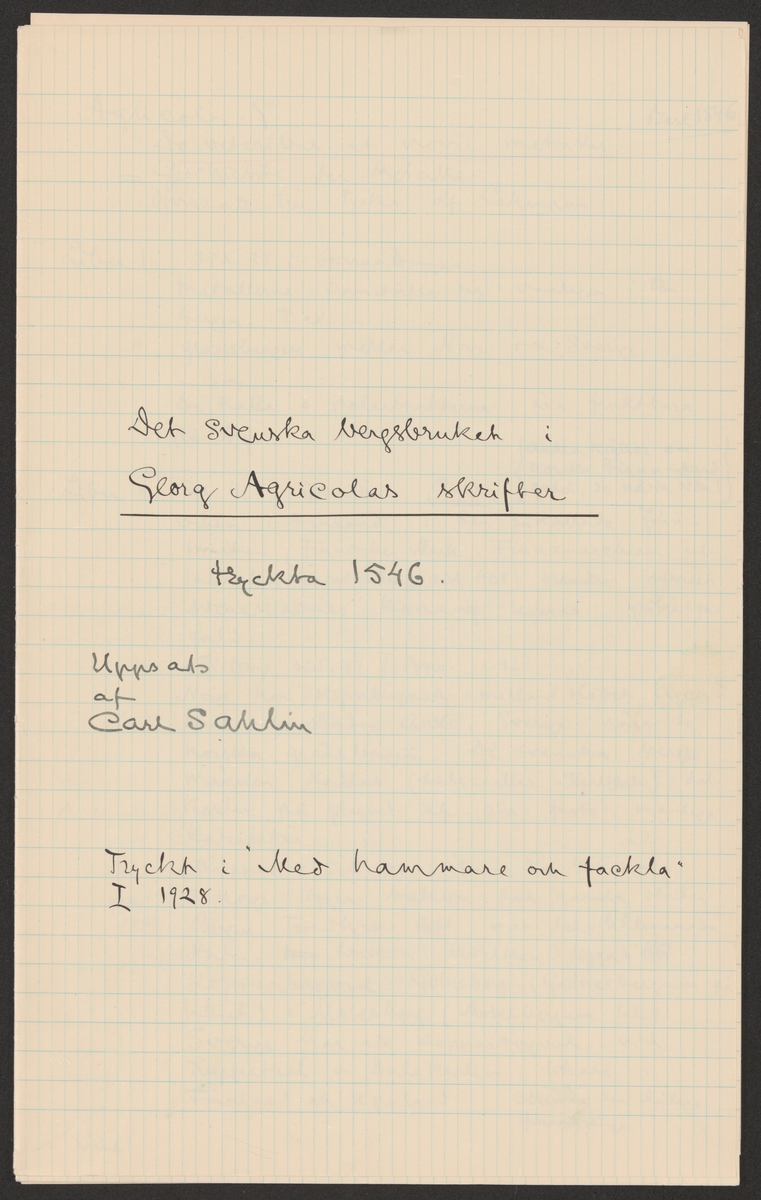 Det Svenska bergsbruket i
Georg Agricolas skrifter
tryckta 1546.
Uppsats
af
Carl Sahlin
Tryckt i "Med hammare och fackla"
I 1928.